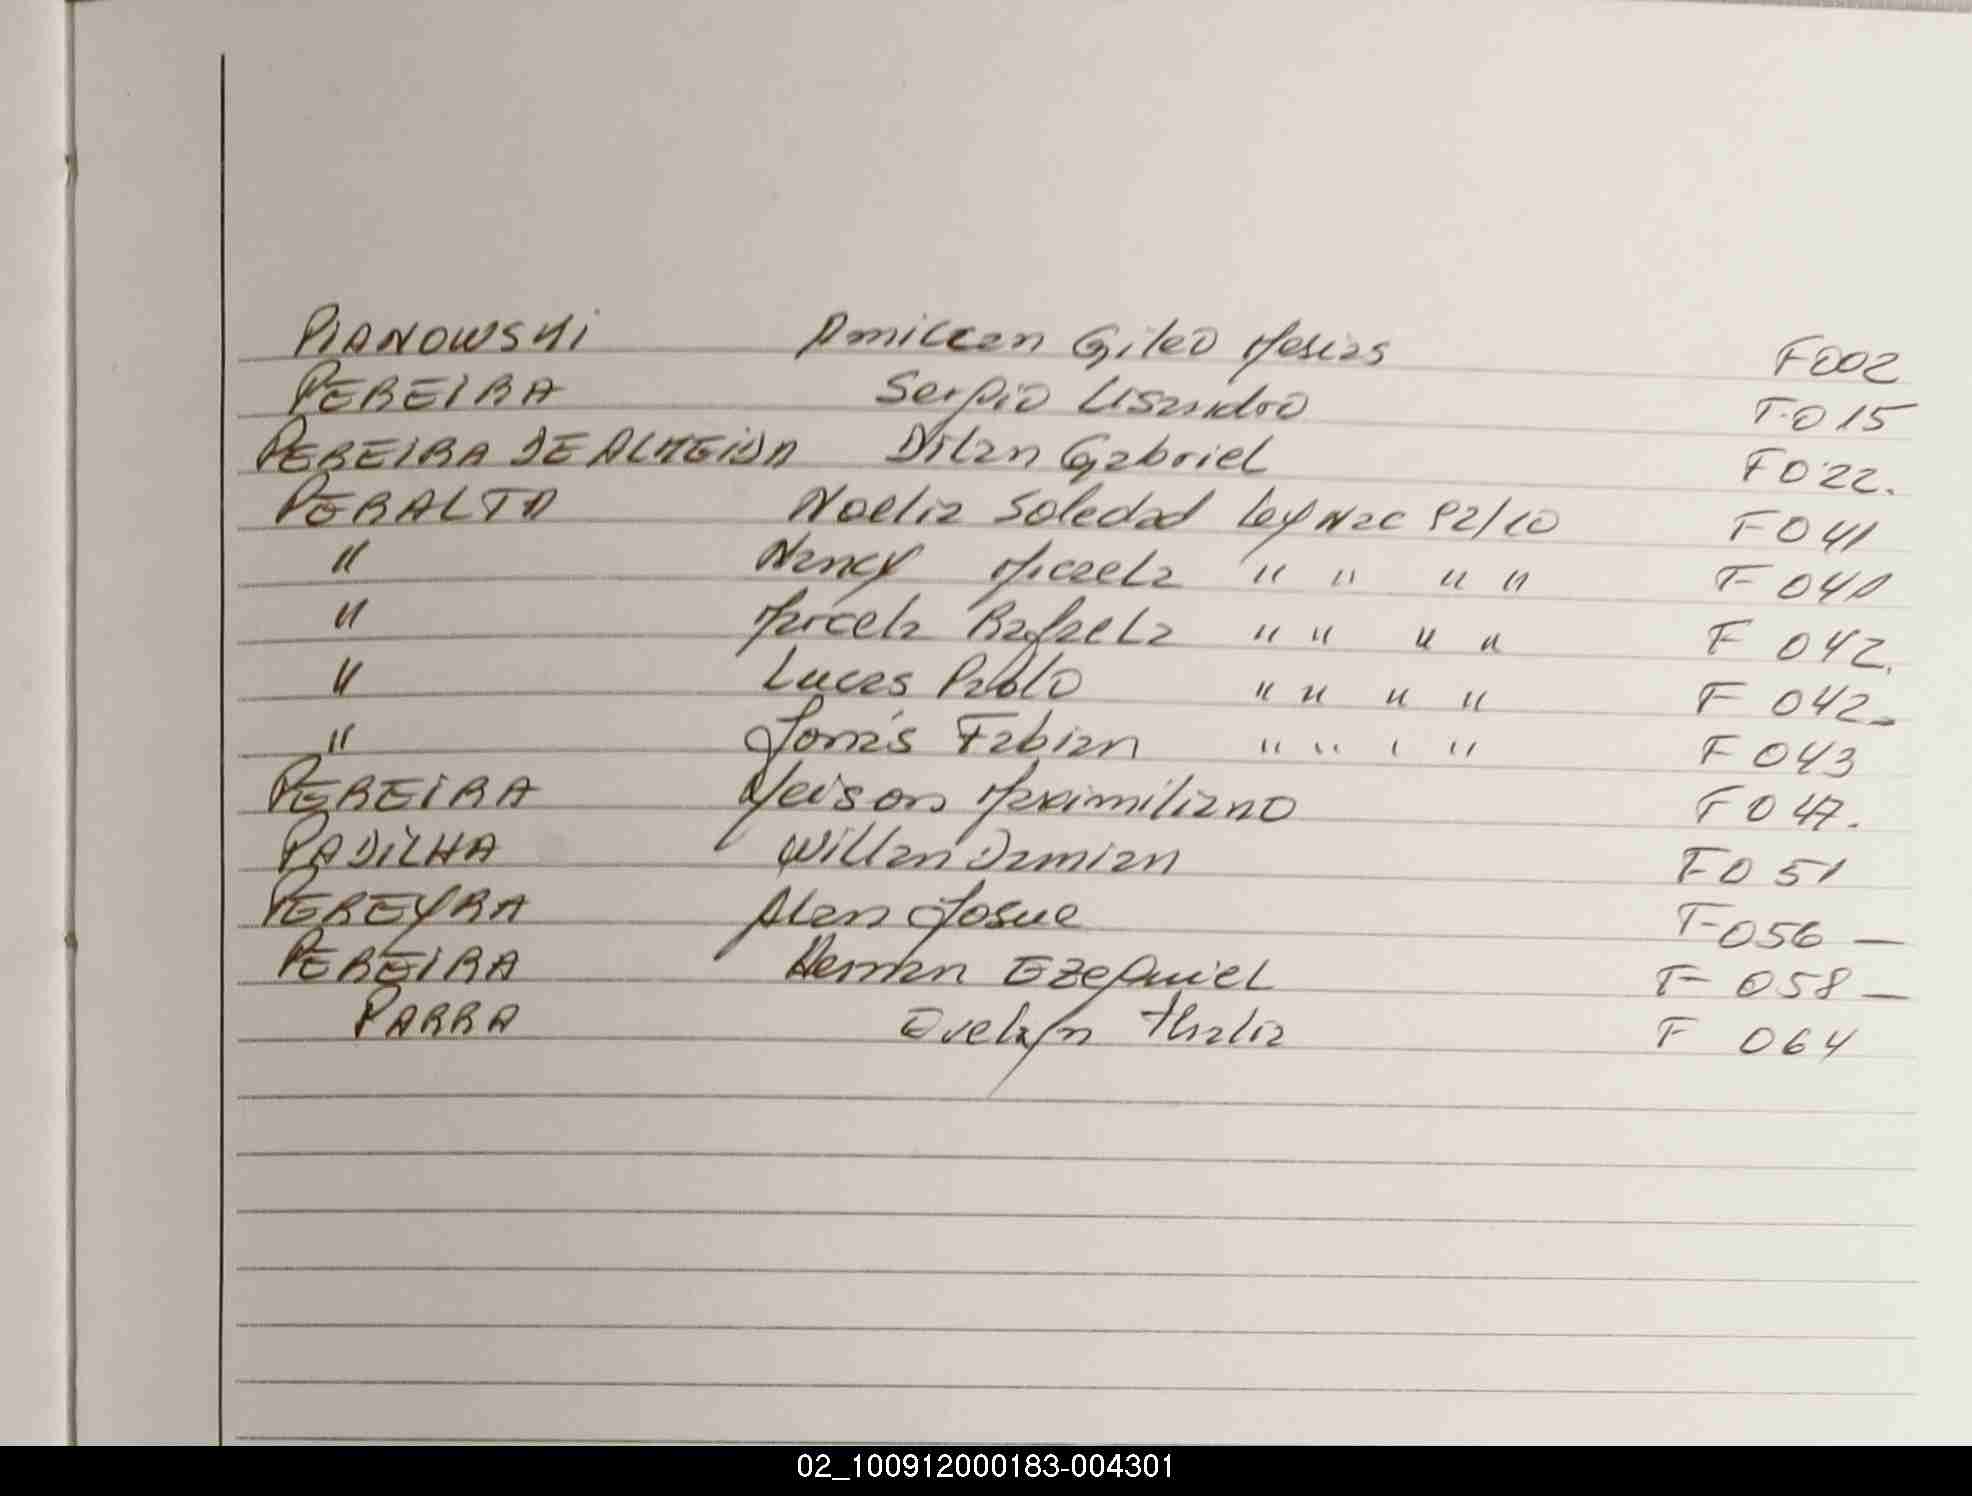 PIANOWSKI Amilcan Gileo Mesias F002
PEREIRA Sergio Lisandro F.015
PEREIRA DE ALMEIDA Dilan Gabriel F022.
PERALTA Noelia Soledad Ley Nac 92/10 F041
" Nancy Micaela " " " " F 041
" Marcela Rafaela " " " " F 042.
" Lucas Pablo " " " " F 042-
" Jonás Fabian " " ' " F 043
PEREIRA Yeison Maximiliano F 047.
PADILHA Willan Damian F0 51
PEREYRA Alen Josue F-056 —
PEREIRA Hernan Ezequiel F 058 —
PARRA Evelyn Thalia F 064
02_100912000183-004301